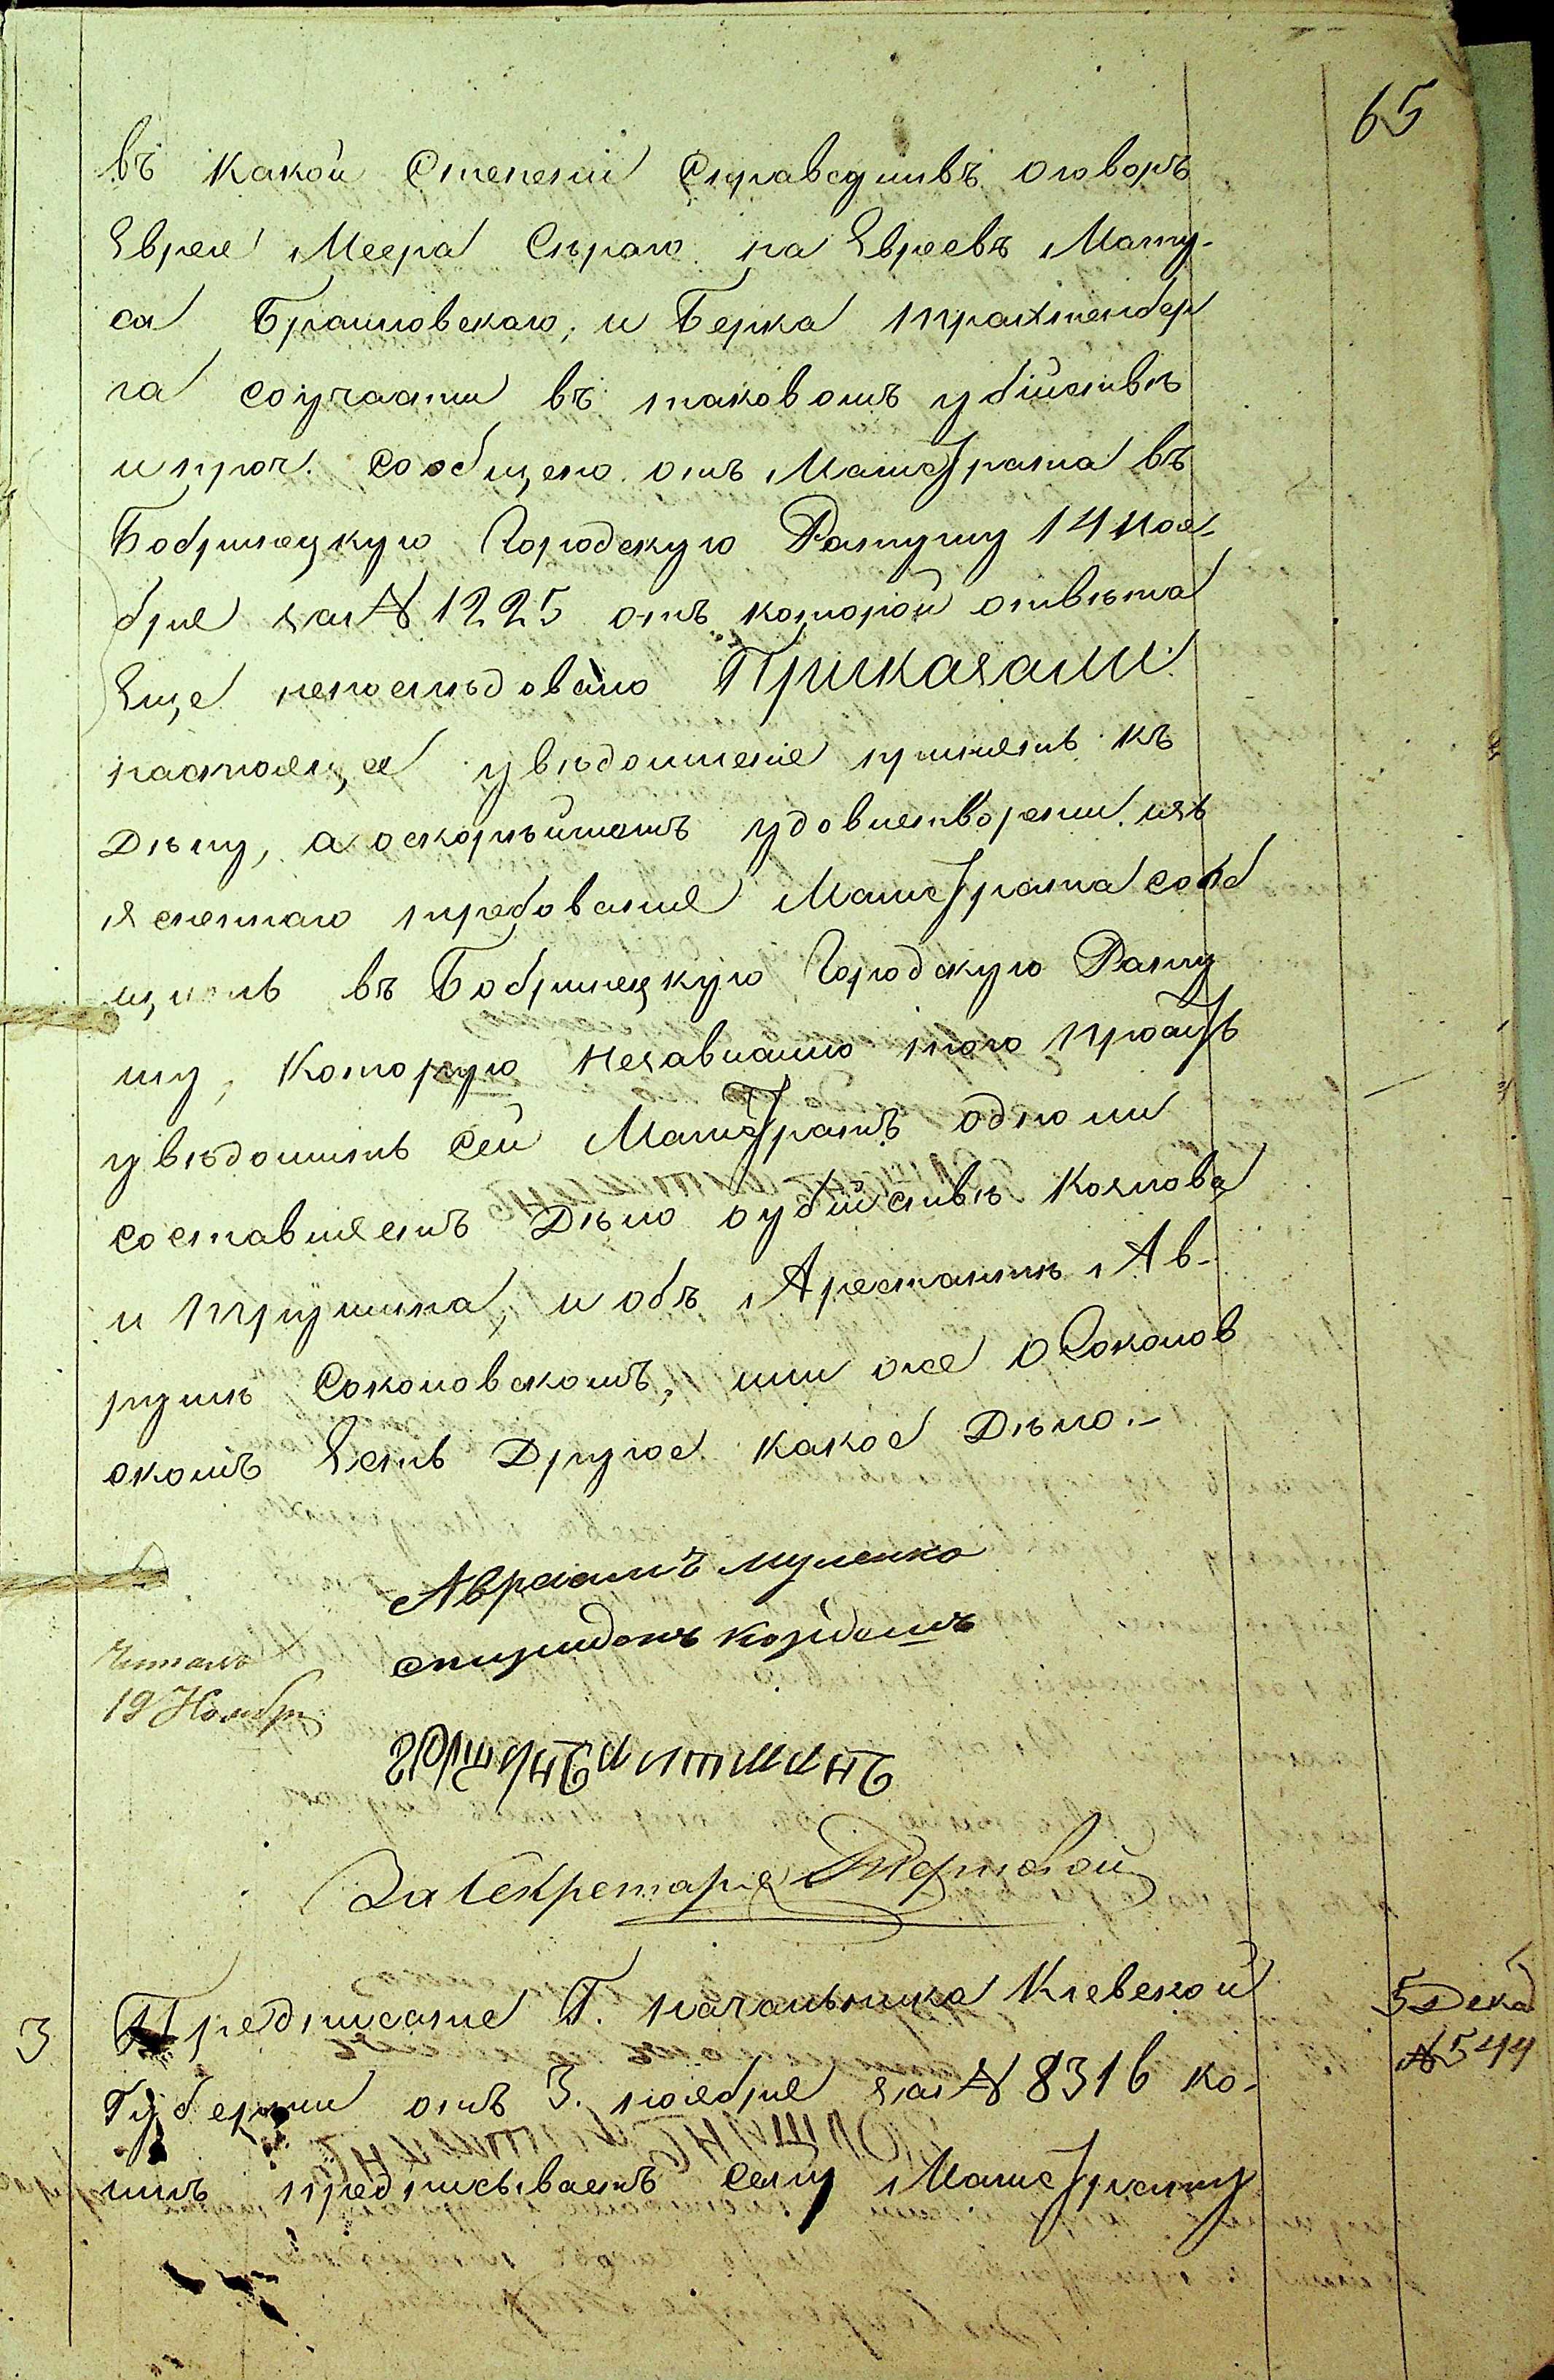 65
въ какой степени справедливъ оговоръ
Еврея Меера Сѣраго на Евреевъ Мату-
са Браиловскаго, и Берка Трахтенбер
га соучастіи въ таковомъ убійствѣ
и проч. сообщено отъ Магистрата въ
Бобринецкую Городскую Ратушу 14 ноя-
бря за № 1225 отъ которой отвѣта
Еще непослѣдовало Приказали:
настоящея увѣдомленіе пріинять къ
дѣлу, а оскорѣйшемъ удовлетвореніи изъ
ясненнаго требованія Магистрата сооб
щить въ Бобринецкую Городскую Рату
шу, которую независимо того просить
увѣдомить сей Магистратъ одноли
составляетъ дѣло оубійствѣ Козлова
и Трушина, и объ Арестантѣ Ав-
румѣ Соколовскомъ, или оже о Соколов
скомъ Есть другое какое дѣло.-
Авраамъ муленко
спиридонъ
Читалъ
19 Ноября
За Секретаря
3
Предписаніе Г. начальника Кіевской
Губерніи отъ 3. ноября за № 8316 ко-
имъ предписываетъ сему Магистрату
5 Дека
№ 544